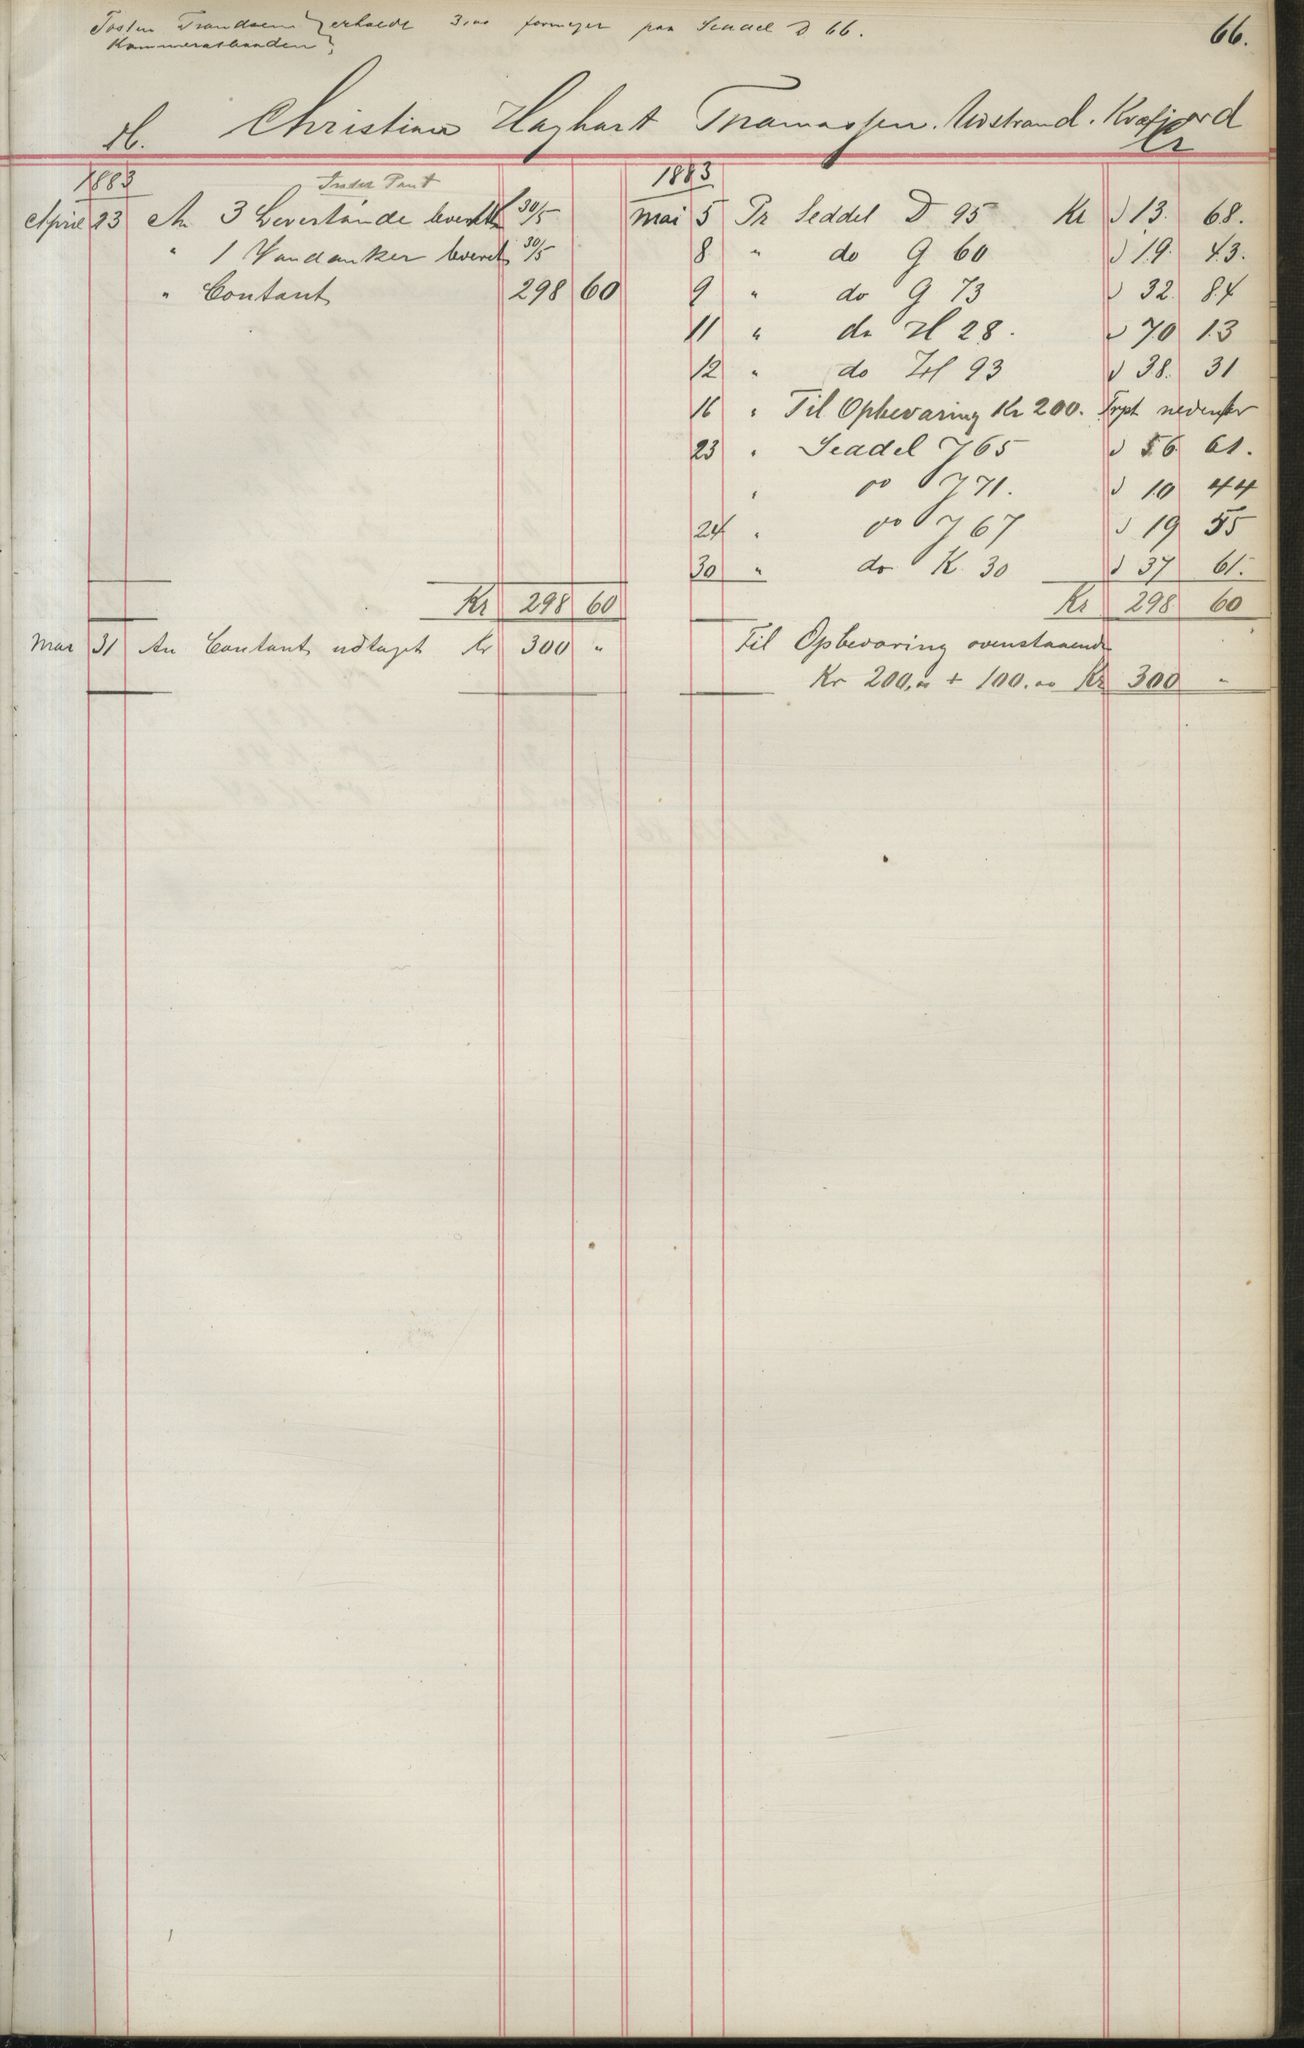 Tosten Trondsen } erholdt 3,00 formeget paa Seddel D 66.
Kammeratbaaden }
66.
Db. Christian Haghart Thomassen. Kvæfjord
Cr
1883 1883
Under Pant
April 23 An 3 Leverstande leveret 30/5
" 1 Vandanker leveret 30/5
" Contant 298 60
Mai 5 Pr Seddel D 95 Kr 13. 68.
8 " do G 60 19. 43.
9 " do G 73 32 84
11 " do H 28. 70 13
12 " do H 93 38. 31
16 " Til Opbevaring Kr 200. nedenfor
23 " Seddel J 65 56 61.
" do J 71. 10 44
24 " do J 67 19 55
30 " do K 30 37 61.
Kr 298 60 Kr 298 60
Mai 31 An Contant udtaget Kr 300 "
Til Opbevaring ovenstaaende
Kr 200,00 + 100.00 Kr 300 "